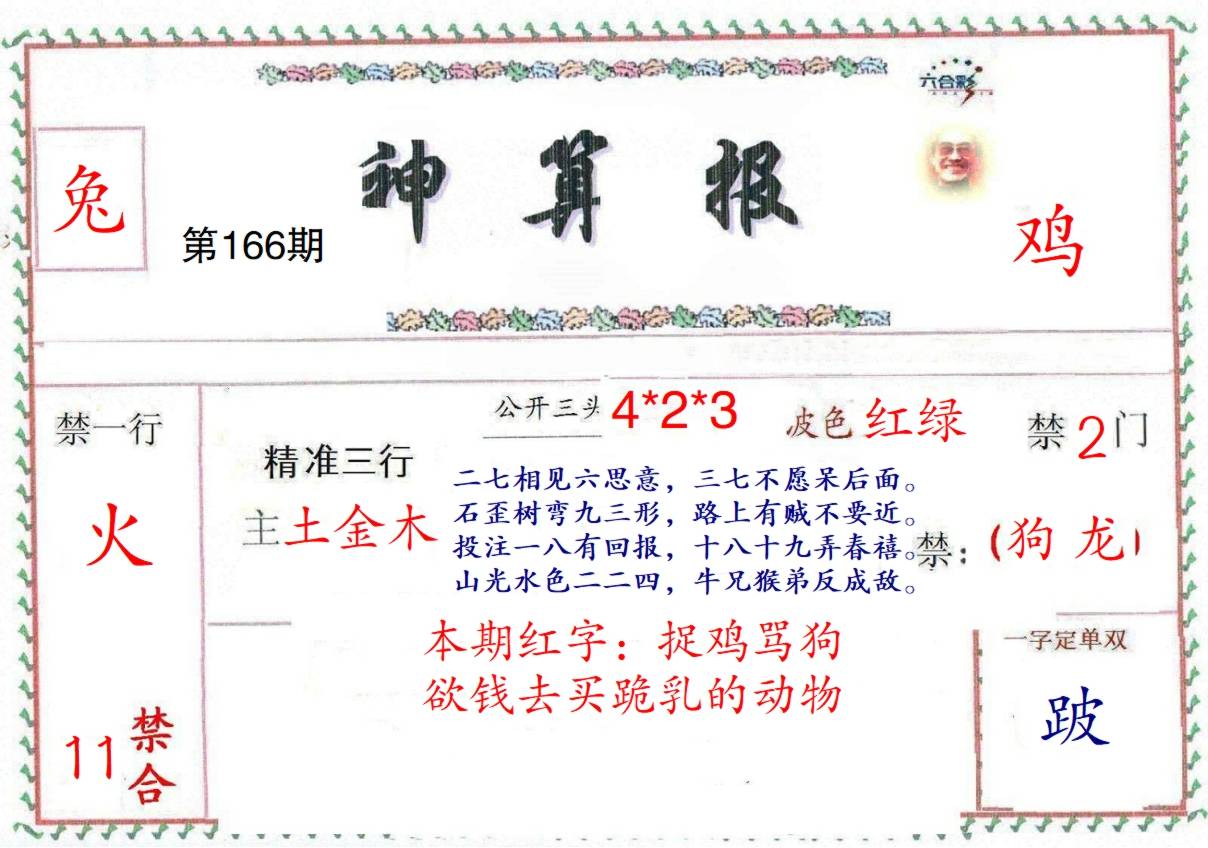 六合彩
神算报
兔
第166期
鸡
禁一行
火
11禁合
公开三头 4*2*3
波色 红绿
禁2门
精准三行
主土金木
二七相见六思意，三七不愿呆后面。
石歪树弯九三形，路上有贼不要近。
投注一八有回报，十八十九弄春禧。
山光水色二二四，牛兄猴弟反成敌。
禁：(狗 龙)
本期红字：捉鸡骂狗
欲钱去买跪乳的动物
一字定单双
跛